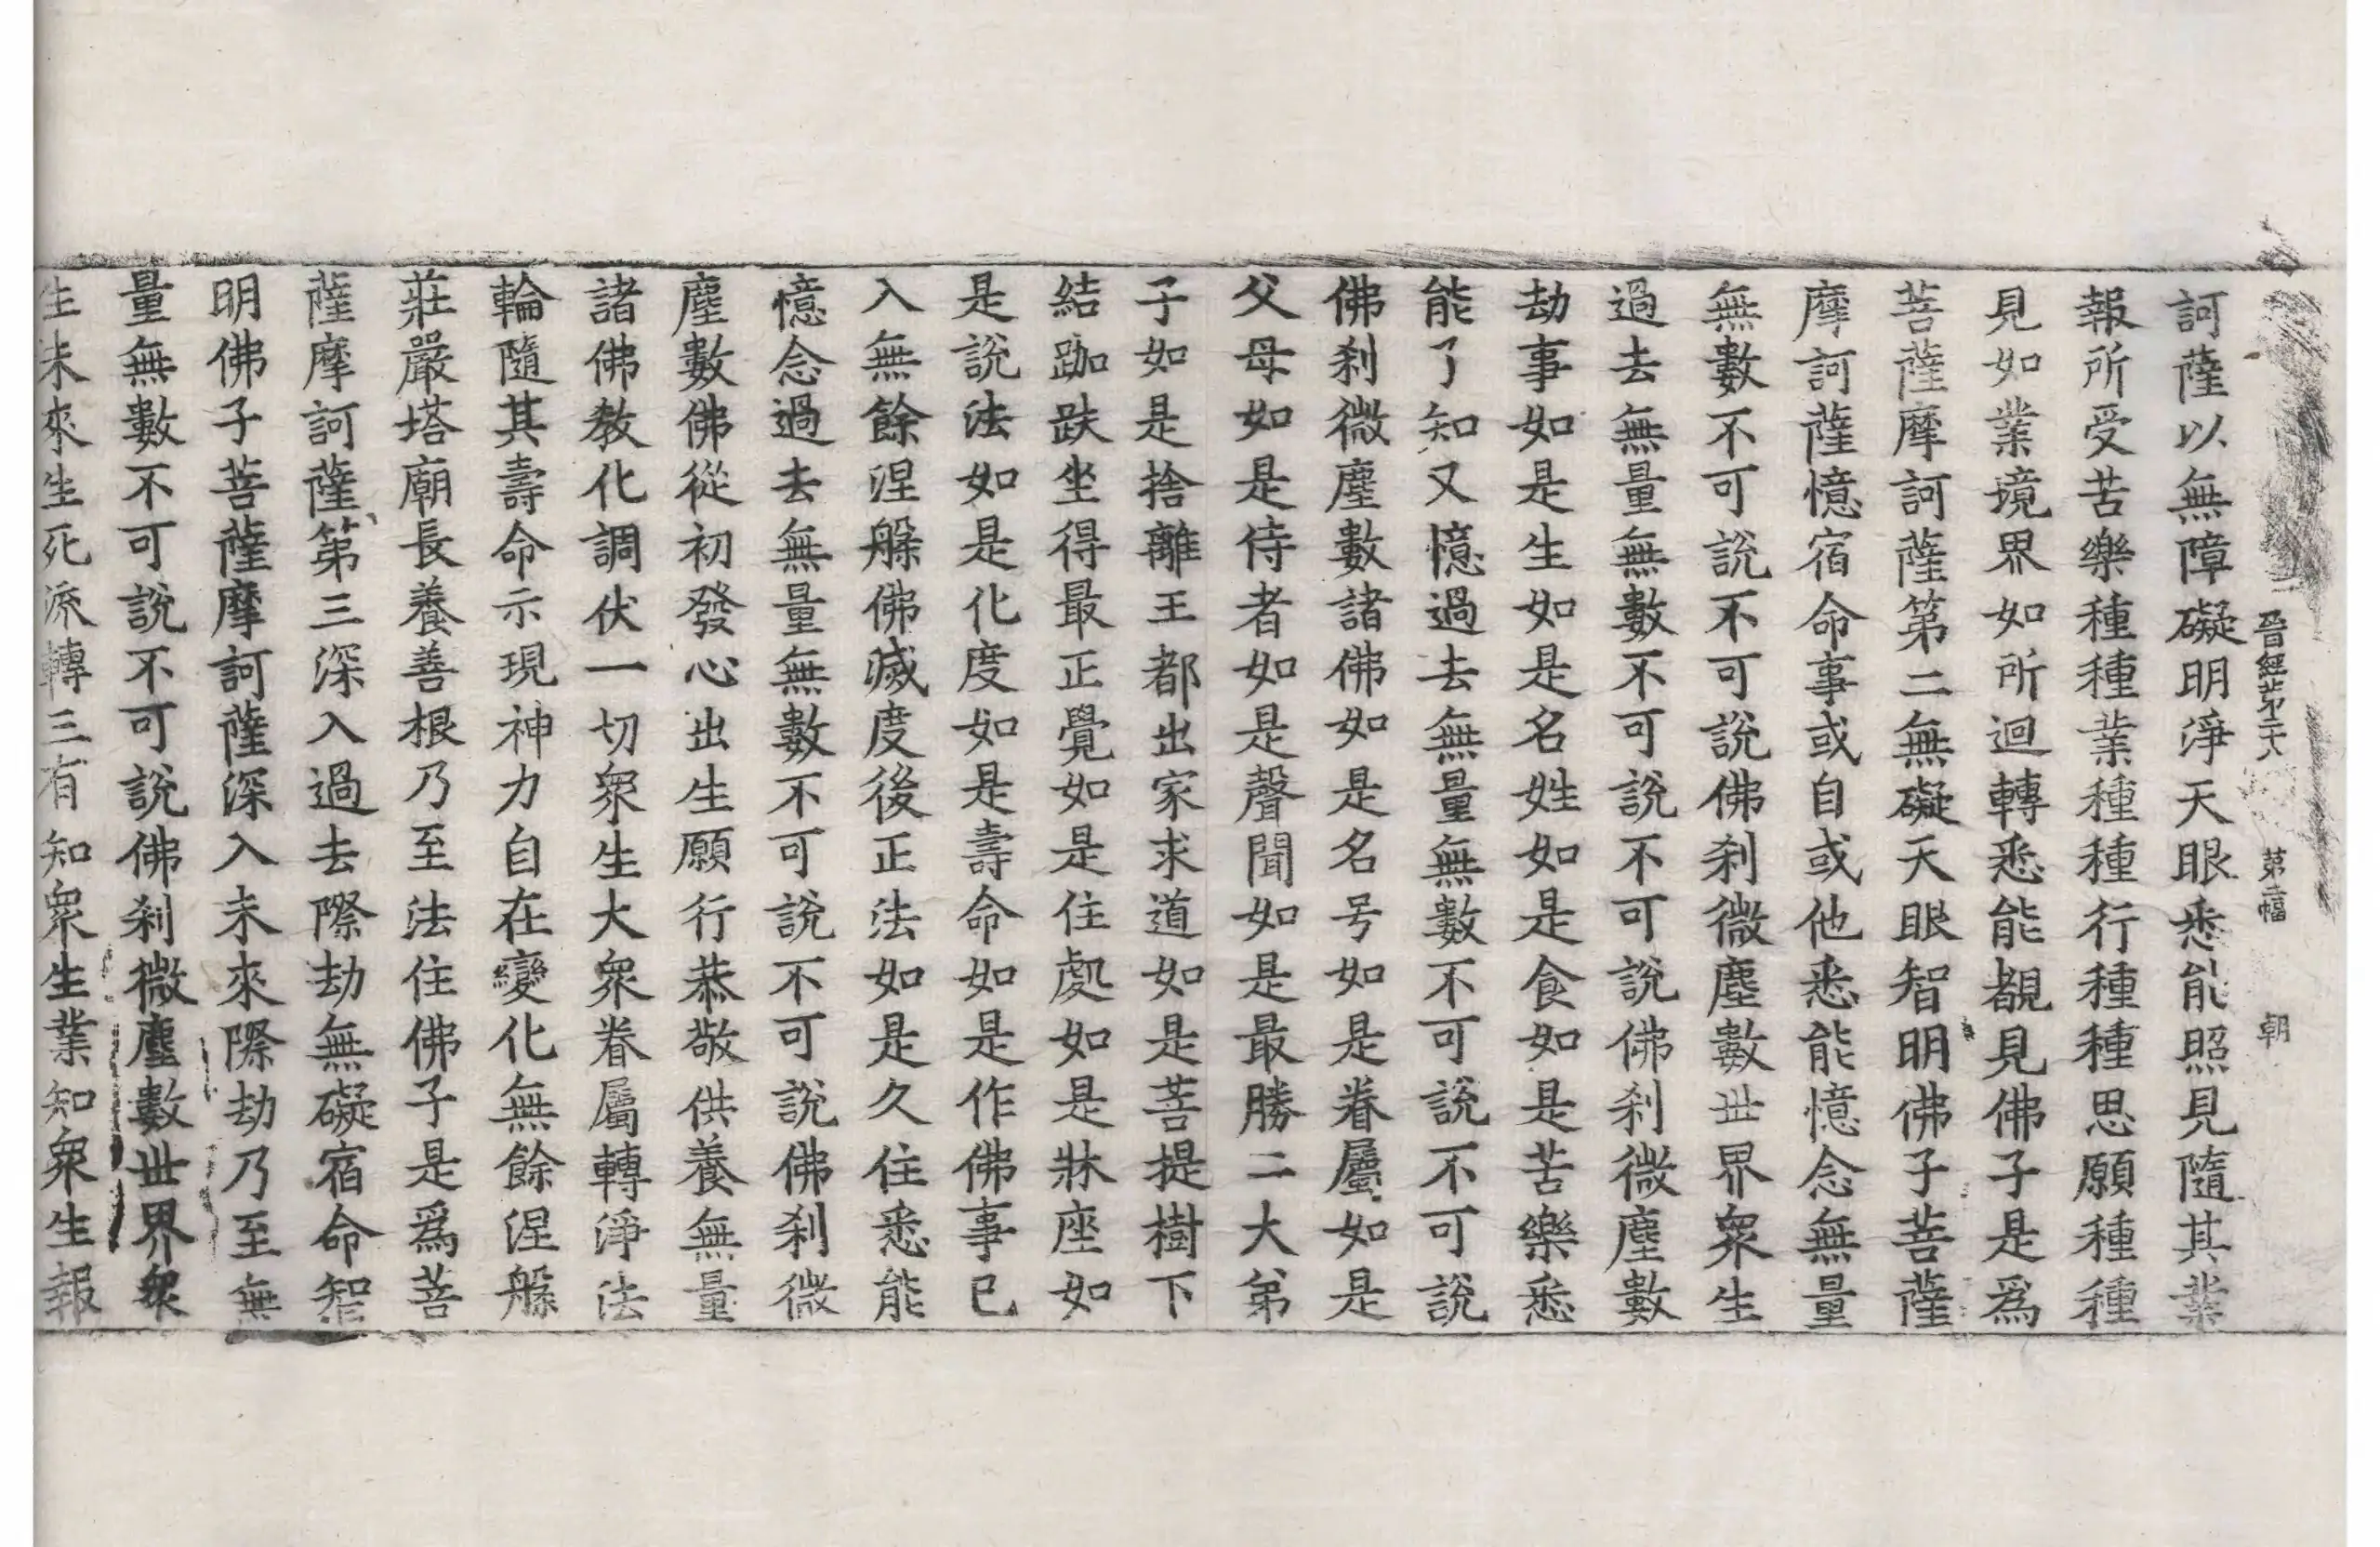 晉經第二十八　第二幅　朝
訶薩以無障礙明淨天眼悉能照見隨其業
報所受苦樂種種業種種行種種思願種種
見如業境界如所迴轉悉能覩見佛子是為
菩薩摩訶薩第二無礙天眼智明佛子菩薩
摩訶薩憶宿命事或自或他悉能憶念無量
無數不可說不可說佛刹微塵數世界衆生
過去無量無數不可說不可說佛刹微塵數
劫事如是生如是名姓如是食如是苦樂悉
能了知又憶過去無量無數不可說不可說
佛刹微塵數諸佛如是名号如是眷屬如是
父母如是侍者如是聲聞如是最勝二大弟
子如是捨離王都出家求道如是菩提樹下
結跏趺坐得最正覺如是住處如是牀座如
是說法如是化度如是壽命如是作佛事已
入無餘涅槃佛滅度後正法如是久住悉能
憶念過去無量無數不可說不可說佛刹微
塵數佛從初發心出生願行恭敬供養無量
諸佛教化調伏一切衆生大衆眷屬轉淨法
輪隨其壽命示現神力自在變化無餘涅槃
莊嚴塔廟長養善根乃至法住佛子是爲菩
薩摩訶薩第三深入過去際劫無礙宿命智
明佛子菩薩摩訶薩深入未來際劫乃至無
量無數不可說不可說佛刹微塵數世界衆
生未來生死流轉三有知衆生業知衆生報